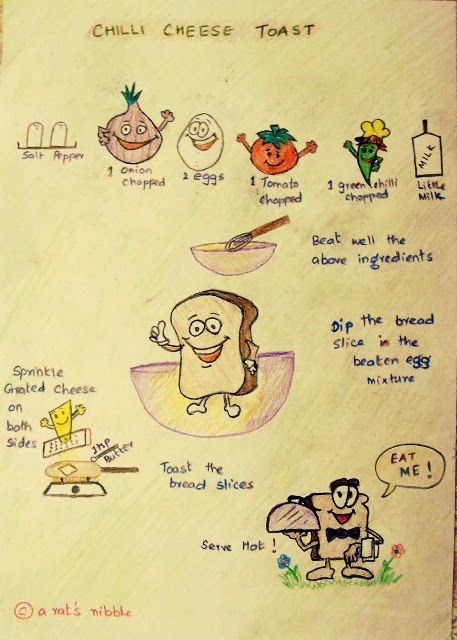 CHILLI CHEESE TOAST
Salt Pepper
1 onion
chopped
2 eggs
1 Tomato
chopped
1 green chilli
chopped
MILK
Little
Milk
Beat well the
above ingredients
Dip the bread
slice in the
beaten egg
mixture
Sprinkle
Grated Cheese
on
both
sides
1tsp
Butter
Toast the
bread slices
EAT
ME!
Serve Hot!
© a rat's nibble